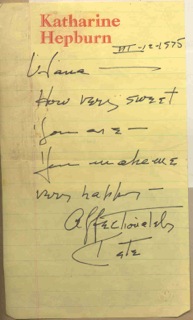 Katharine
Hepburn
VII-12-1975
How very sweet
you are—
You make me
very happy—
Affectionately
Kate